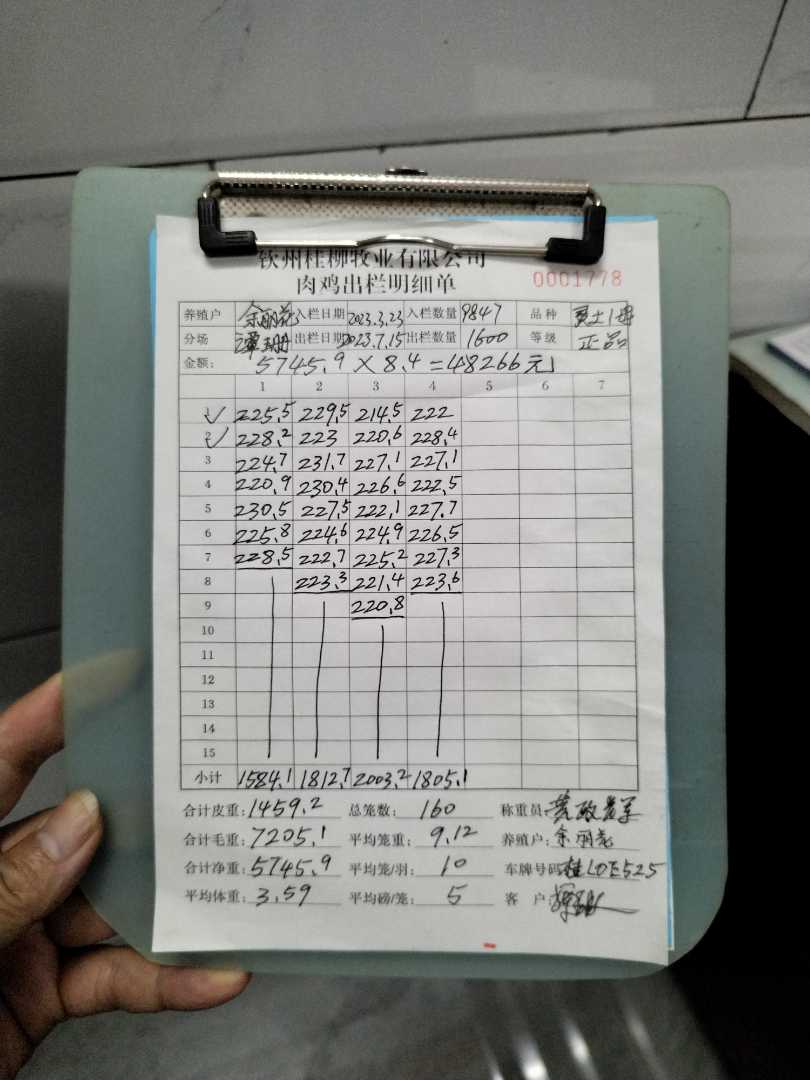 钦州桂柳牧业有限公司
肉鸡出栏明细单 0001778
养殖户 余丽花 入栏日期 2023.3.23 入栏数量 9847 品种
分场 出栏日期 2023.7.15 出栏数量 1600 等级 正品
金额: 5745.9 × 8.4 = 48266元
1 2 3 4 5 6 7
1 225.5 229.5 214.5 222
2 228.2 223 220.6 228.4
3 224.7 231.7 227.1 227.1
4 220.9 230.4 226.6 222.5
5 230.5 227.5 222.1 227.7
6 225.8 224.6 224.9 226.5
7 228.5 222.7 225.2 227.3
8 223.3 221.4 223.6
9 220.8
10
11
12
13
14
15
小计 1584.1 1812.7 2003.2 1805.1
合计皮重: 1459.2 总笼数: 160 称重员:
合计毛重: 7205.1 平均笼重: 9.12 养殖户: 余丽花
合计净重: 5745.9 平均笼/羽: 10 车牌号码: 桂L0E525
平均体重: 3.59 平均磅/笼: 5 客户: